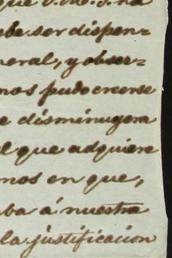 que S.M.S. ha
abe ser dispen=
neral, y obser=
mos pudo crecerse
e disminuyera
l que adquiere
mos en que,
ba á nuestra
la justificacion